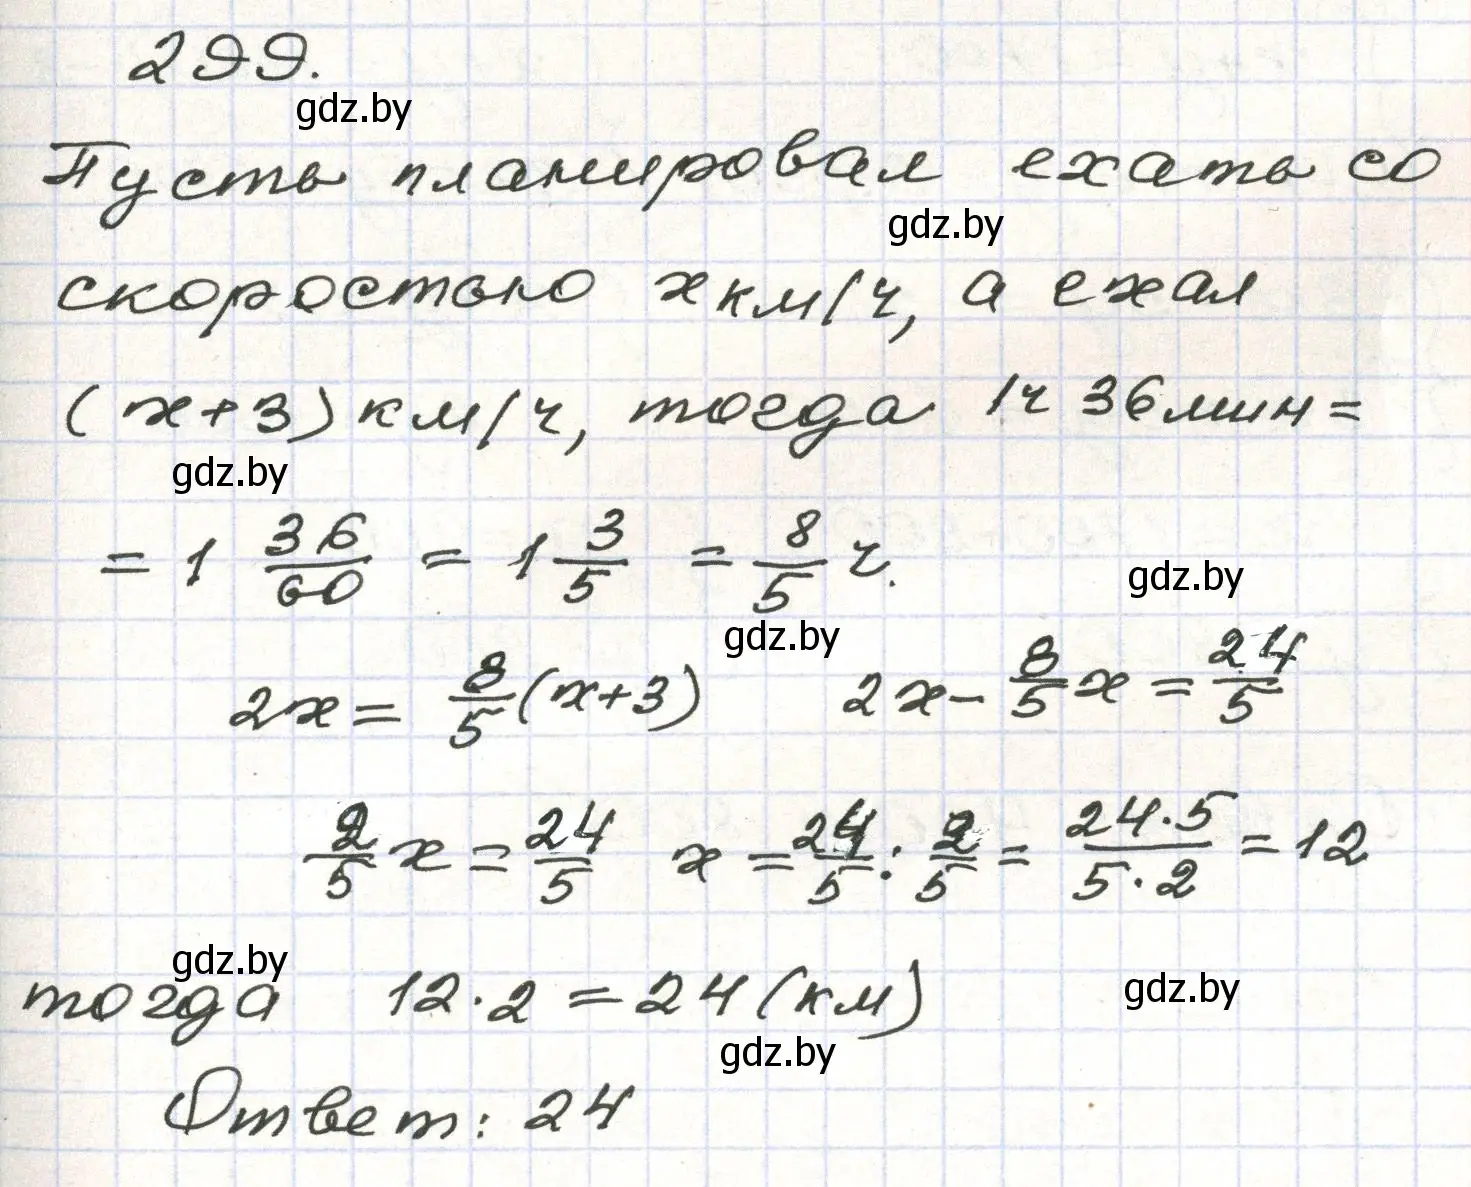 299.
gdz.by
Пусть планировал ехать со
gdz.by
скоростью x км/ч, а ехал
(x+3) км/ч, тогда 1ч 36мин =
gdz.by
= 1 36/60 = 1 3/5 = 8/5 ч.
gdz.by
gdz.by
2x = 8/5 (x+3) 2x - 8/5 x = 24/5
2/5 x = 24/5 x = 24/5 : 2/5 = 24·5/5·2 = 12
gdz.by
тогда 12·2 = 24 (км)
gdz.by
gdz.by
Ответ: 24